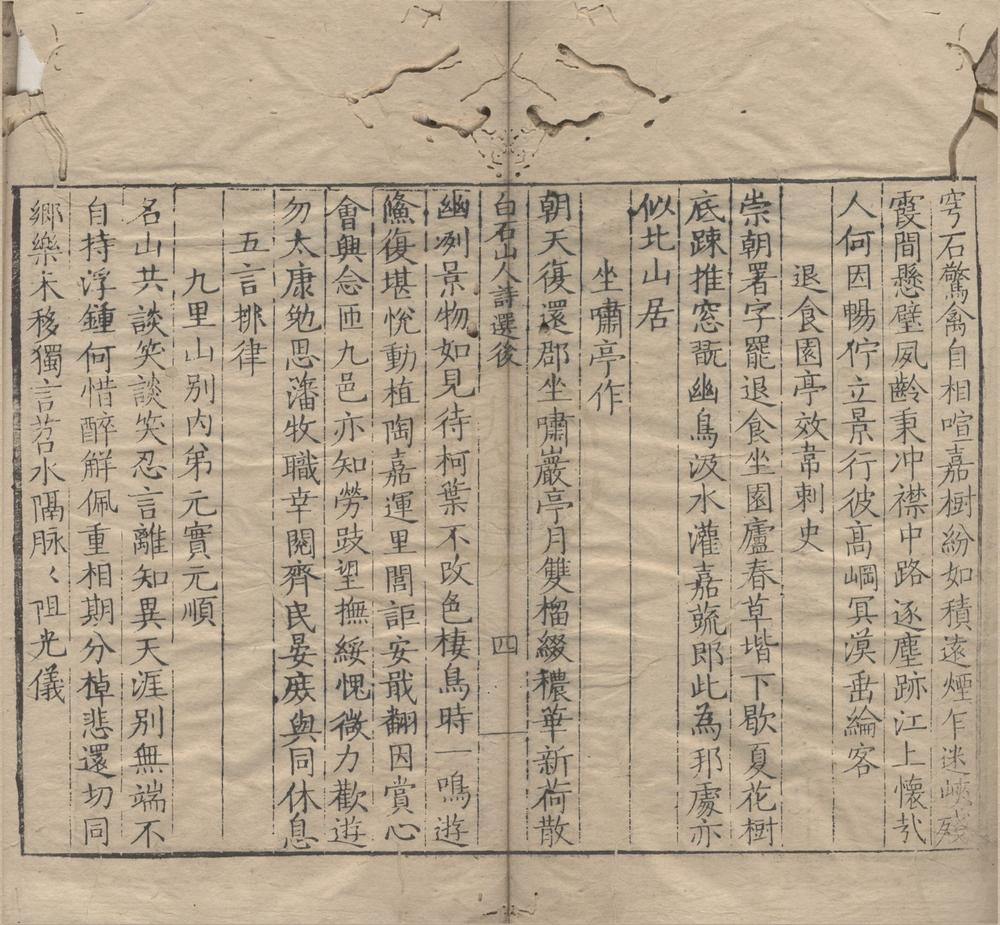 穹石驚禽自相喧嘉樹紛如積遠煙乍迷峽殘
霞間懸壁夙齡秉冲襟中路逐塵跡江上懷哉
人何因暢佇立景行彼高岡冥漠垂綸客
退食園亭效韋刺史
崇朝署字罷退食坐園廬春草堦下歇夏花樹
底踈推窓翫幽鳥汲水灌嘉蔬郎此為那處亦
似北山居
坐嘯亭作
朝天復還郡坐嘯巖亭月雙榴綴穠華新荷散
白石山人詩選後 四
幽冽景物如見待柯葉不改色棲鳥時一鳴遊
鯈復堪悅動植陶嘉運里閭詎安戢翻因賞心
會興念匝九邑亦知勞跂望撫綏愧微力歡遊
勿太康勉思藩牧職幸閱齊民晏庶與同休息
五言排律
九里山別内弟元實元順
名山共談笑談笑忍言離知異天涯別無端不
自持浮鍾何惜醉觧佩重相期分棹悲還切同
鄉樂未移獨言苕水隔脉〻阻光儀